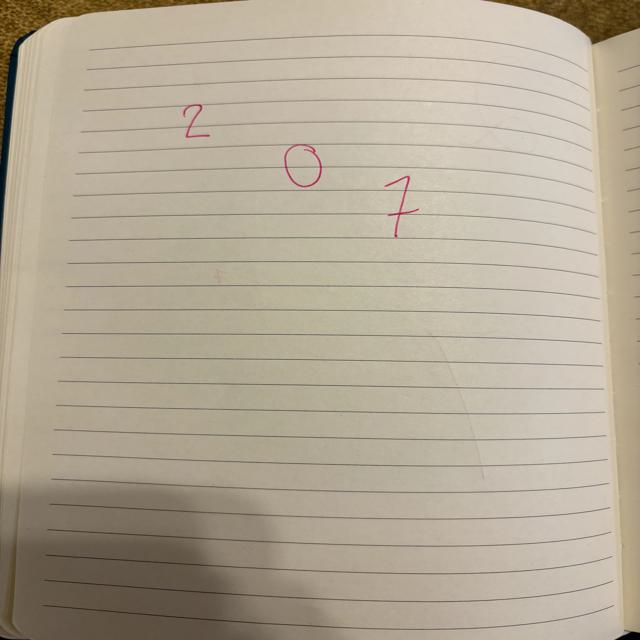 2
0
7